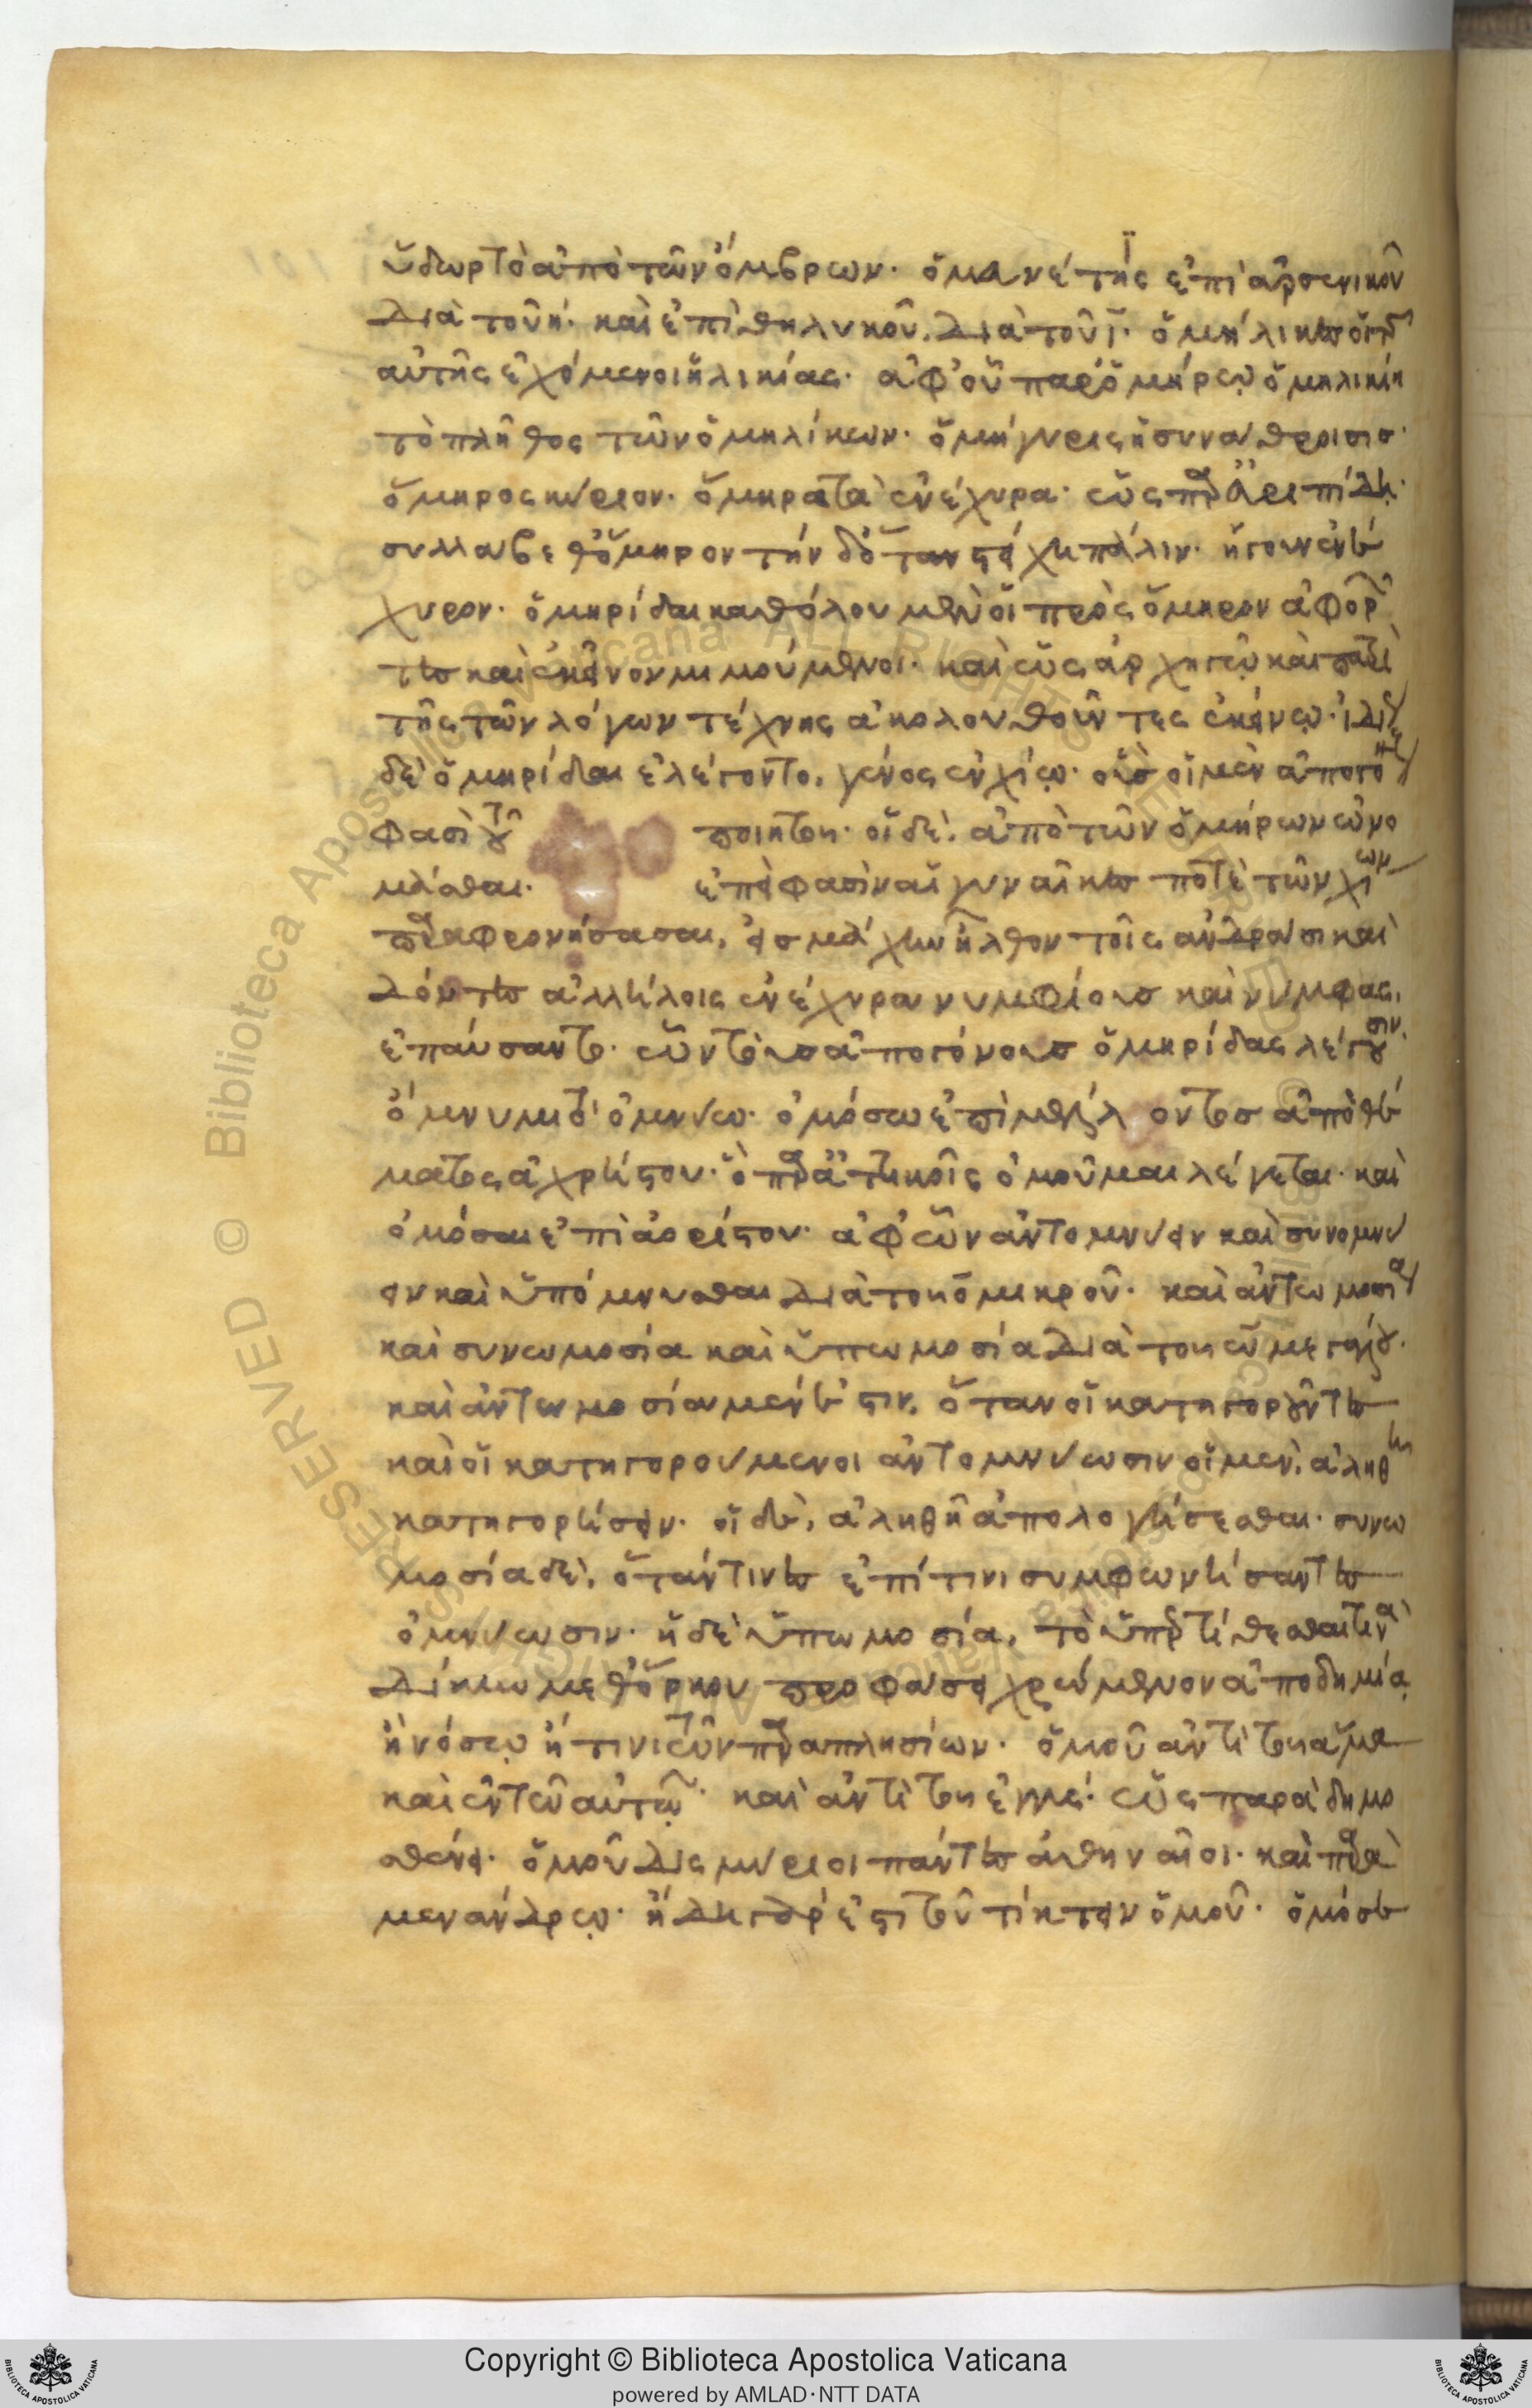 ὕδωρ τὸ ἀπὸ τῶν ὄμβρων. ὁμενέτης ἐπὶ ἀρσενικοῦ
διὰ τοῦ η. καὶ ἐπὶ θηλυκοῦ, διὰ τοῦ ϊ. ὁμήλικες οἱ τῆς
αὐτῆς ἐχόμενοι ἡλικίας. ἀφ' οὗ παρ' ὁμήρῳ ὁμηλικίη
τὸ πλῆθος τῶν ὁμηλίκων. ὁμήγυρις ἡ συνάθροισις.
ὅμηρος κύριον. ὅμηρα τὰ ἐνέχυρα. ὡς παρὰ Ἀριπίδῃ.
συλλαβε θὅμηρον τήνδ' ὅταν στείχῃ πάλιν. ἤγουν ἐνέ
χυρον. ὁμηρίδαι καθόλου μὲν οἱ πρὸς ὅμηρον ἀφορῶν
τες καὶ ἐκεῖνον μιμούμενοι. καὶ ὡς ἀρχηγῷ καὶ πατρὶ
τῆς τῶν λόγων τέχνης ἀκολουθοῦντες ἐκείνῳ. ἰδίως
δὲ ὁμηρίδαι ἐλέγοντο, γένος ἐν χίῳ. οὓς οἱ μὲν ἀπογόνους
φασὶ τοῦ ποιητοῦ. οἱ δὲ, ἀπὸ τῶν ὁμήρων ὠνο
μάσθαι. ἐπεὶ φασὶν αἱ γυναῖκες ποτὲ τῶν χίων
παραφρονήσασαι, εἰς μάχην ἦλθον τοῖς ἀνδράσι καὶ
δόντες ἀλλήλοις ἐνέχυρα νυμφίους καὶ νύμφας,
ἐπαύσαντο. ὧν τοὺς ἀπογόνους ὁμηρίδας λέγουσιν.
ὄμνυμι τὸ ὀμνύω. ὀμόσω ἐπὶ μέλλοντος ἀπὸ θέ
ματος ἀχρήστου. ὃ παρὰ ἀττικοῖς ὀμοῦμαι λέγεται. καὶ
ὀμόσαι ἐπὶ ἀορίστου. ἀφ' ὧν ἀντομνύειν καὶ συνομνύ
ειν καὶ ὑπόμνυσθαι διὰ τοῦ ο μικροῦ. καὶ ἀντωμοσία
καὶ συνωμοσία καὶ ὑπωμοσία διὰ τοῦ ω μεγάλου.
καὶ ἀντωμοσία μέν ἐστιν, ὅταν οἱ κατηγοροῦντες
καὶ οἱ κατηγορούμενοι ἀντομνύωσιν οἱ μὲν, ἀληθῆ
κατηγορήσειν. οἱ δὲ, ἀληθῆ ἀπολογήσεσθαι. συνω
μοσία δὲ, ὅτάν τινες ἐπί τινι συμφωνήσαντες
ὀμνύωσιν. ἡ δὲ ὑπωμοσία, τὸ ὑπερτίθεσθαι τινὰ
δίκην μεθ' ὅρκου προφάσει χρώμενον ἀποδημίᾳ
ἢ νόσῳ ἤ τινι τῶν παραπλησίων. ὁμοῦ ἀντὶ τοῦ ἅμα
καὶ ἐν τῶ αὐτῷ. καὶ ἀντὶ τοῦ ἐγγύς. ὡς παρὰ δημο
σθένει. ὁμοῦ δισμύριοι πάντες ἀθηναῖοι. καὶ παρὰ
μενάνδρῳ. ἤδη γάρ ἐστι τοῦ τίκτειν ὁμοῦ. ὁμόσε